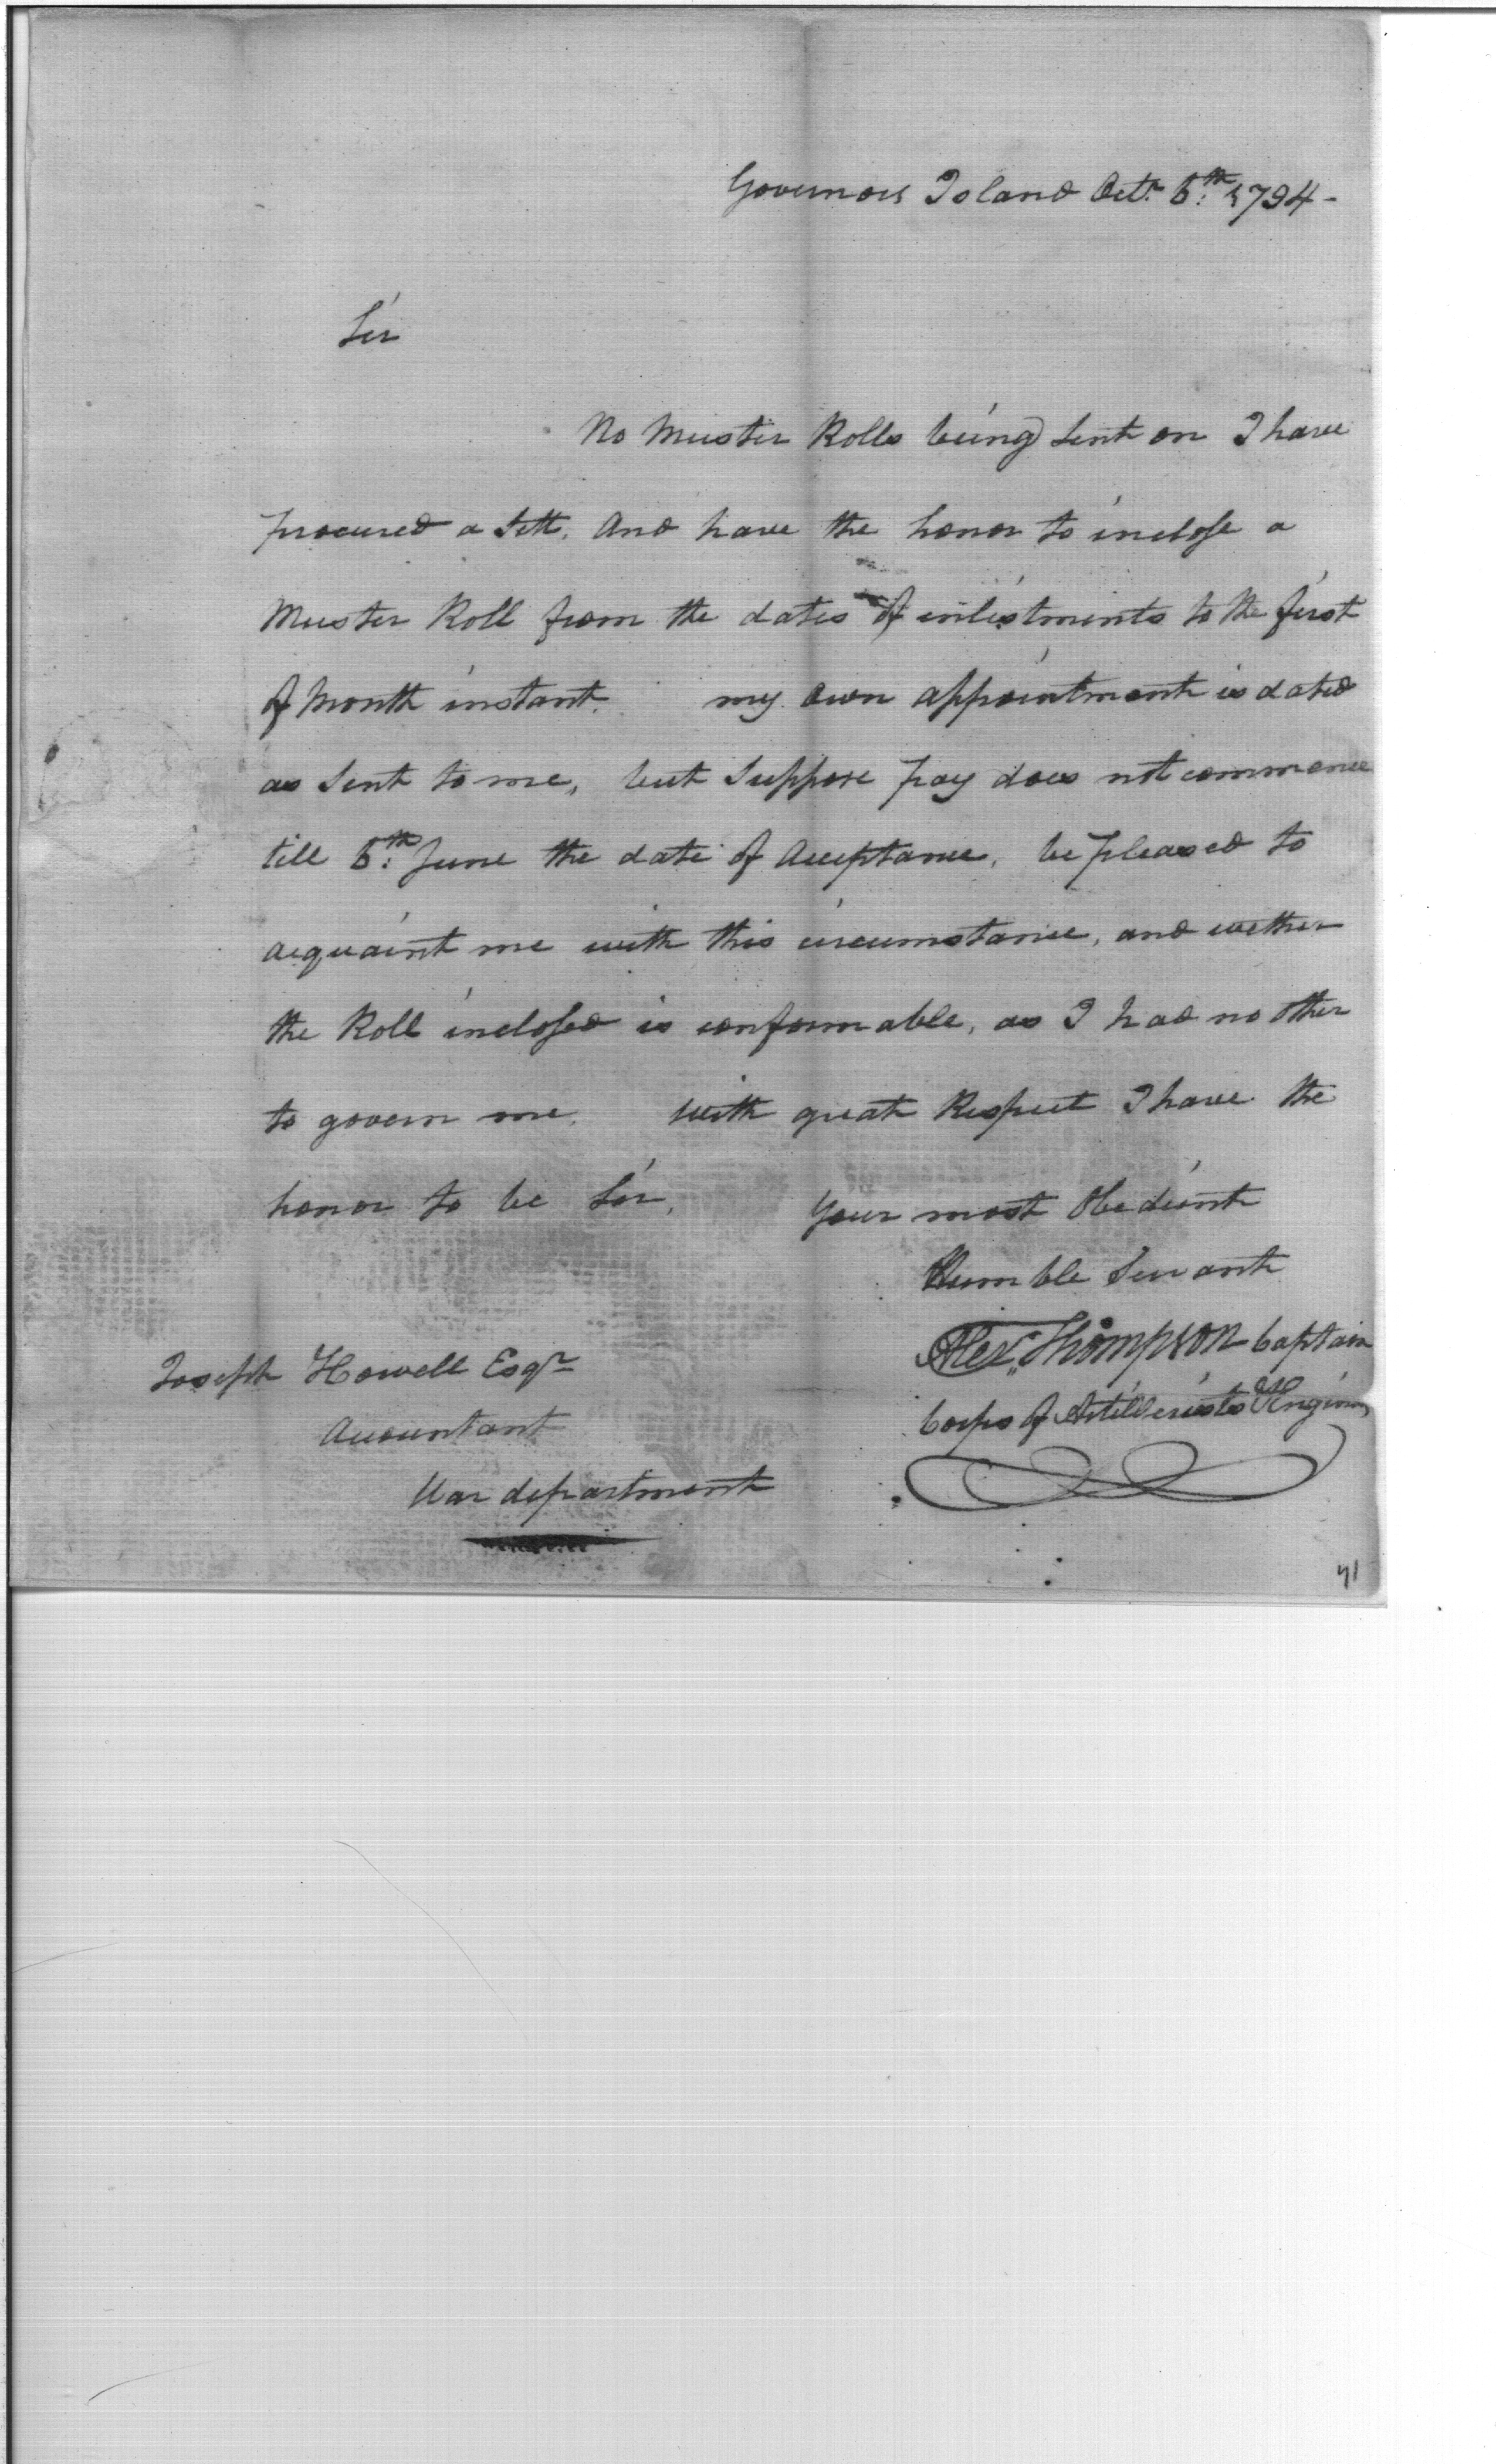 Governors Island Octr. 6:th 1794 -
Sir
No Muster Rolls being sent on I have
procured a Sett. And have the honor to inclose a
Muster Roll from the dates of inlistments to the first
of Month instant. my own appointment is dated
as sent to me, but suppose pay does not commence
till 6:th June the date of Acceptance, be pleased to
acquaint me with this circumstance, and wether
the Roll inclosed is conformable, as I had no other
to govern me. With great Respect I have the
honor to be Sir,
Your most Obedient
Humble Servant
Alexr. Thompson Captain
Corps of Artillerists & Engineers
Joseph Howell Esqr
Accountant
War department
41